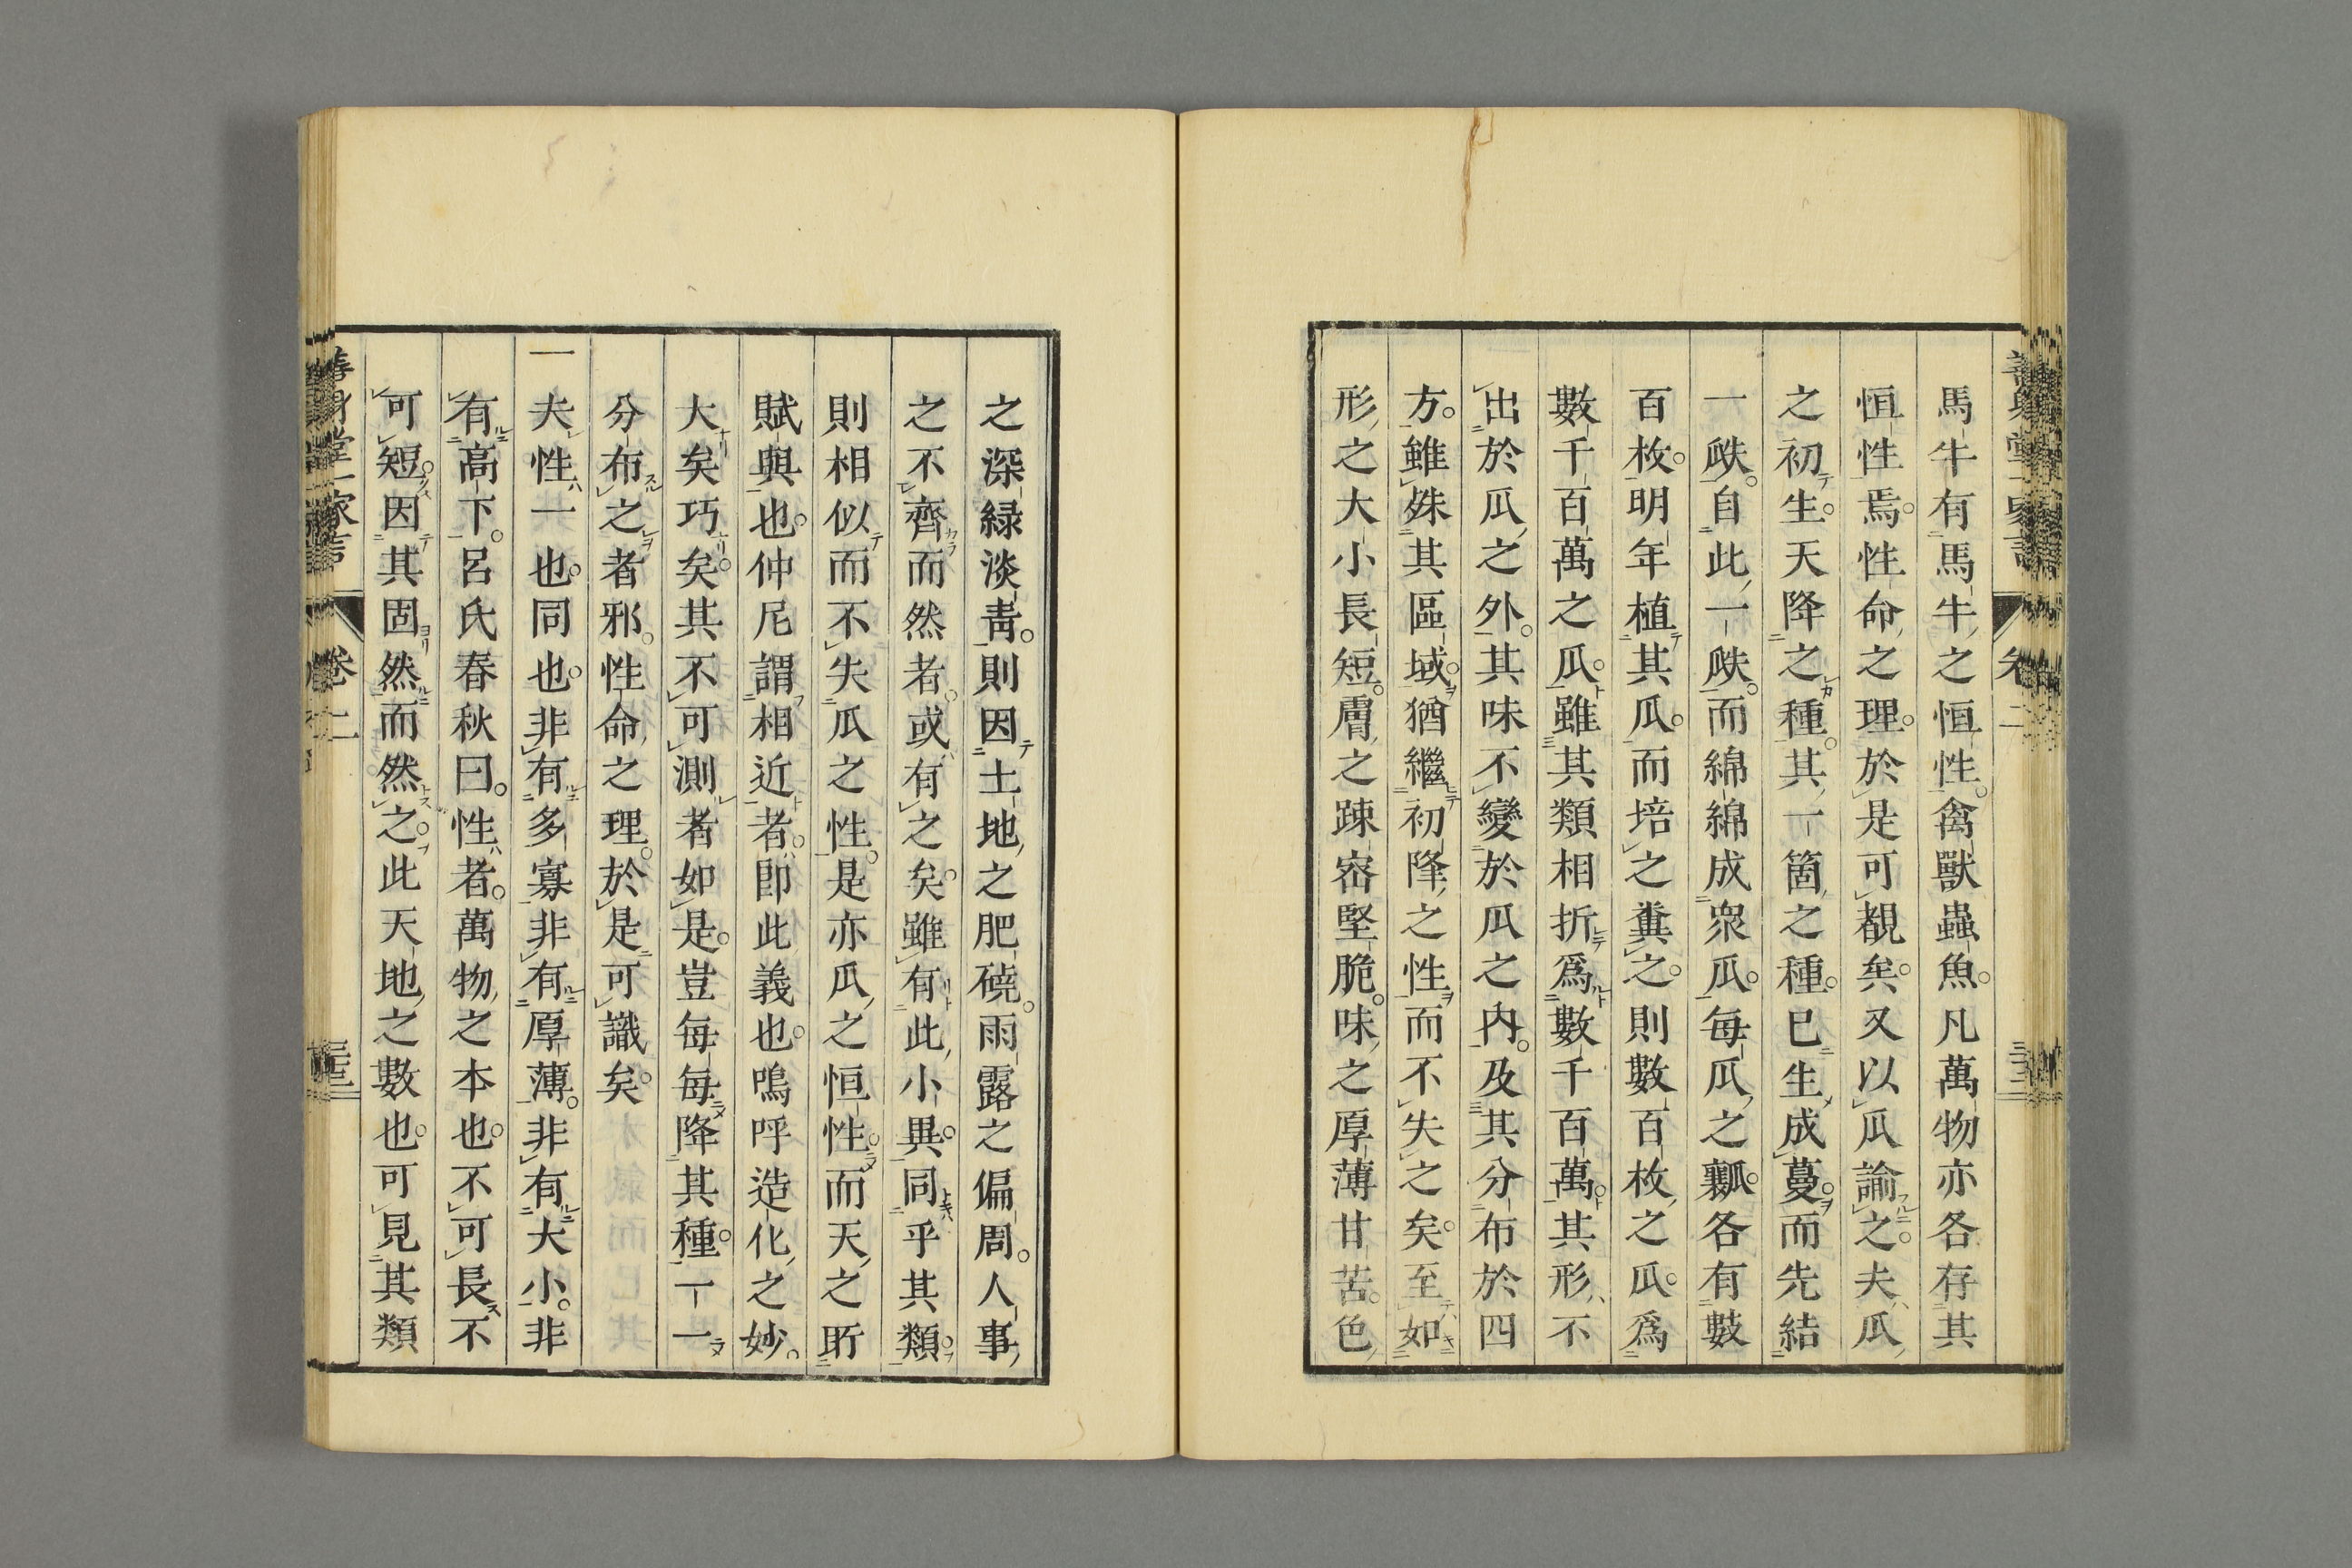 馬牛有馬牛之恒性禽獸蟲魚凡萬物亦各存其
恒性焉性命之理於是可覩矣又以瓜諭之夫瓜
之初生天降之種其一箇之種已生成蔓而先結
一瓞自此一瓞而綿綿成衆瓜每瓜之瓤各有數
百枚明年植其瓜而培之糞之則數百枚之瓜爲
數千百萬之瓜雖其類相折爲數千百萬其形不
出於瓜之外其味不變於瓜之內及其分布於四
方雖殊其區域猶繼初降之性而不失之矣至如
形之大小長短膚之踈宻堅脆味之厚薄甘苦色
之深緑淡靑則因土地之肥磽雨露之偏周人事
之不齊而然者或有之矣雖有此小異同乎其類
則相似而不失瓜之性是亦瓜之恒性而天之所
賦與也仲尼謂相近者即此義也嗚呼造化之妙
大矣巧矣其不可測者如是豈每每降其種一一
分布之者邪性命之理於是可識矣
一夫性一也同也非有多寡非有厚薄非有大小非
有高下呂氏春秋曰性者萬物之本也不可長不
可短因其固然而然之此天地之數也可見其類
卷二